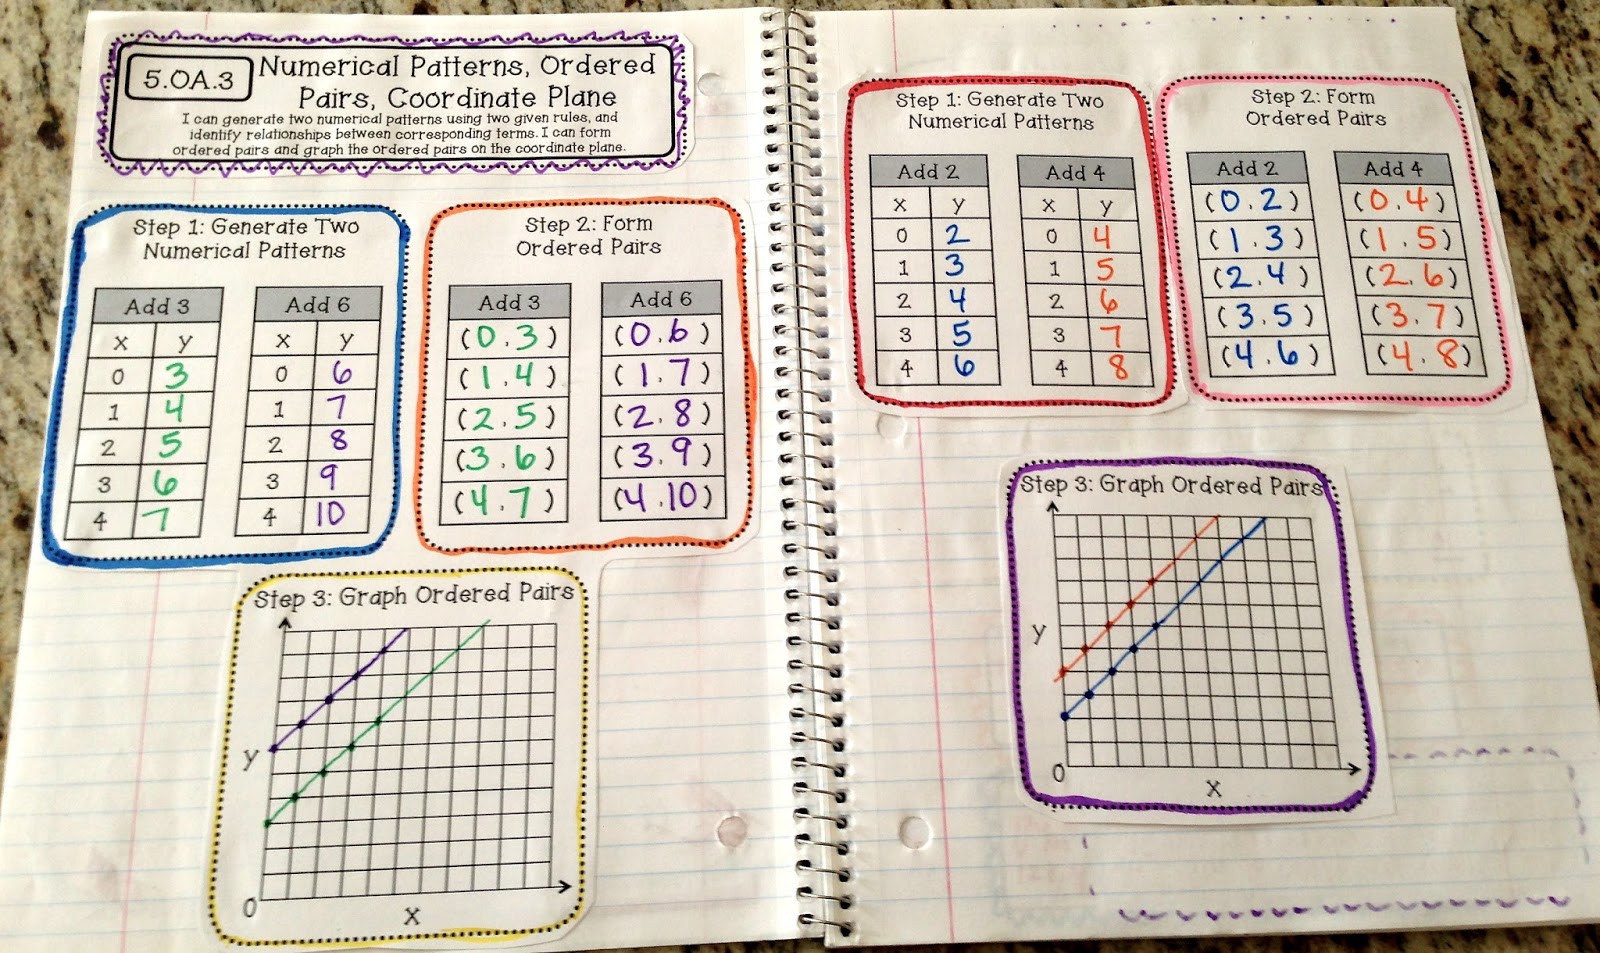 5.OA.3
Numerical Patterns, Ordered
Pairs, Coordinate Plane
I can generate two numerical patterns using two given rules, and
identify relationships between corresponding terms. I can form
ordered pairs and graph the ordered pairs on the coordinate plane.
Step 1: Generate Two
Numerical Patterns
Add 3
x y
0 3
1 4
2 5
3 6
4 7
Add 6
x y
0 6
1 7
2 8
3 9
4 10
Step 2: Form
Ordered Pairs
Add 3
(0.3)
(1.4)
(2.5)
(3.6)
(4.7)
Add 6
(0.6)
(1.7)
(2.8)
(3.9)
(4.10)
Step 3: Graph Ordered Pairs
y
0
x
Step 1: Generate Two
Numerical Patterns
Add 2
x y
0 2
1 3
2 4
3 5
4 6
Add 4
x y
0 4
1 5
2 6
3 7
4 8
Step 2: Form
Ordered Pairs
Add 2
(0.2)
(1.3)
(2.4)
(3.5)
(4.6)
Add 4
(0.4)
(1.5)
(2.6)
(3.7)
(4.8)
Step 3: Graph Ordered Pairs
y
0
x